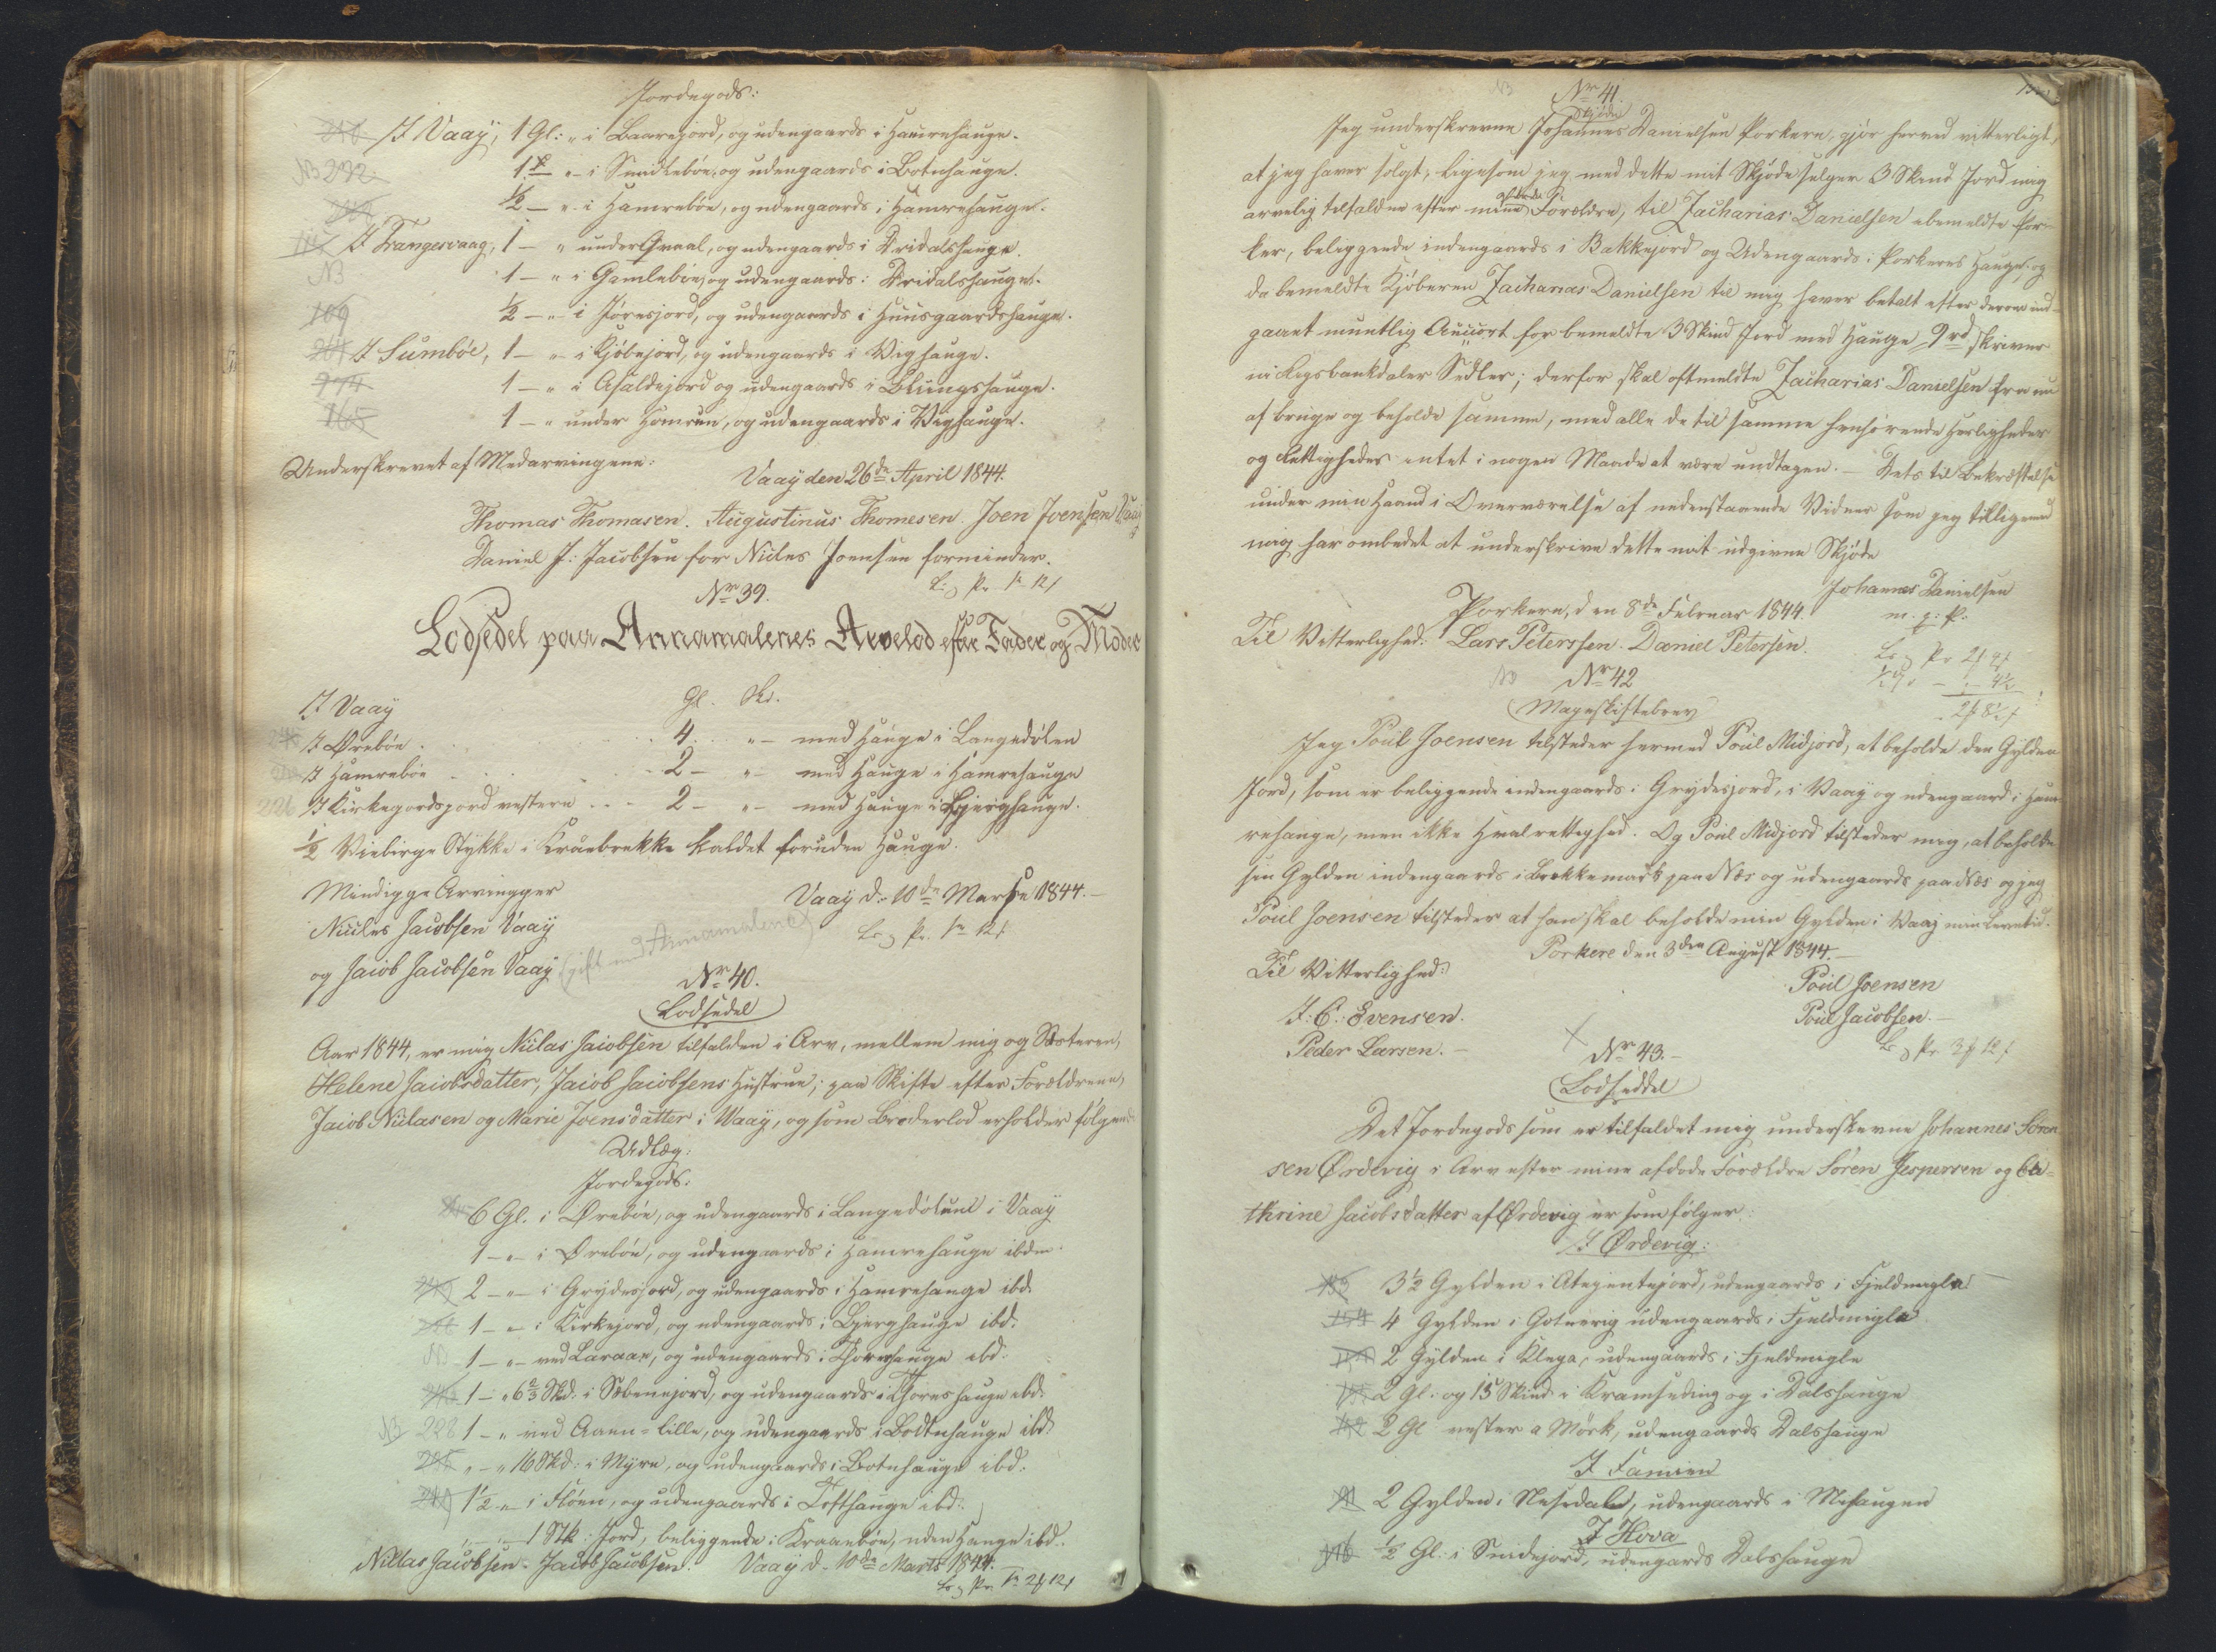 Jordegods:
210 I Vaaÿ, 1 Gl: „ i Baarejord, og udengaards i Hamrehauge.
NB 232 1 — „ i Smidlebøe, og udengaards i Botnhauge.
½ — „ i Hamrebøe, og udengaards i Hamrehauge.
I Trangesvaag, 1 — „ under Graal, og udengaards i Dridalshauge.
NB 1 — „ i Gamlebøe, og udengaards i Dridalshauge.
109 ½ — „ i Jørnsjord, og udengaards i Huusgaardshauge.
204 I Sumbøe, 1 — „ i Kjøbejord, og udengaards i Vighauge.
974 1 — „ i Asaldejord og udengaards i Blungshauge.
165 1 — „ under Homrun, og udengaards i Vighauge.
Underskrevet af Medarvingene:
Vaaÿ den 26de April 1844.
Thomas Thomasen. Augustinus Thomesen. Joen Joensen Vaaÿ
Daniel J: Jacobsen for Niclas Joensen forminder.
Nr 39.
Lodsedel paa Annamalenes Arvelod efter Fader og Moder
I Vaaÿ Gl. Sk.
I Ørebøe 4 „ — med Hauge i Langedølen
I Hamrebøe 2 — „ — med Hauge i Hamrehauge
226 I Kirkegordsjord vestere 2 — „ — med Hauge i Bjerghauge.
½ Viebirge Stÿkke i Kraaebrekke kaldet foruden Hauge.
Mindigge Arvingger
Vaaÿ d. 10de Martse 1844.
Niclas Jacobsen Vaaÿ
og Jacob Jacobsen Vaaÿ (gift med Annamalene)
Nr 40.
Lodsedel
Aar 1844, er mig Niclas Jacobsen tilfalden i Arv, mellem mig og Søsteren,
Helene Jacobsdatter, Jacob Jacobsens Hustrue, paa Skifte efter Forældrene,
Jacob Niclasen og Marie Joensdatter i Waaÿ, og som Broderlod erholder følgende
Udlæg:
Jordegods:
6 Gl. i Ørebøe, og udengaards i Langedølene i Vaaÿ
1 — „ — i Ørebøe, og udengaards i Hamrehauge ibdm
2 — „ — i Grÿdesjord, og udengaards i Hamrehauge ibd.
1 — „ — i Kirkejord, og udengaards i Bjerghauge ibd.
NB 1 — „ — ved Laraae, og udengaards i Thoreshauge ibd.
1 — „ 6⅔ Skd. i Stbenejord, og udengaards i Thoreshauge ibd.
NB 228 1 — „ ved Aaen=lille, og udengaards i Bodtnhauge ibd.
226 „ — „ 16 Skd: i Mÿre, og udengaards i Botnhauge ibd.
1½ „ — i Fløen, og udengaards i Tofthauge ibd.
„ — „ 1 Stk: Jord, beliggende i Kraaebøe, uden Hauge ibd.
Niklas Jacobsen. Jacob Jacobsen. Vaaÿ d. 10de Marts 1844.
NB Nr 41.
Skjøde
Jeg underskrevne Johannes Danielsen Porkere, gjør herved vitterligt,
at jeg haver solgt, ligesom jeg med dette mit Skjøde selger 3 Skind Jord mig
arvelig tilfalden efter mine afdøde Forældre, til Zacharias Danielsen ibemeldte Por-
ker, beliggende indengaards i Bakkejord og Udengaards i Porkeres Hauge, og
da bemeldte Kjøberen Zacharias Danielsen til mig haver betalt efter derom ind-
gaaet muntlig Accort for bemeldte 3 Skind Jord med Hauge 9rd skriver
ni Rigsbankdaler Sedler; derfor skal oftmeldte Zacharias Danielsen fra nu
af bruge og beholde samme, med alle de til samme henhørende Herligheder
og Rettigheder intet i nogen Maade at være undtagen. — Dets til Bekræftelse
under min Haand i Overværelse af nedenstaaende Vidner som jeg tilligemed
mig har ombedet at underskrive dette mit udgivne Skjøde
Johannes Danielsen
Porkere, den 8de Februar 1844. m. p: P:
Til Vitterlighed: Lars Peterssen. Daniel Petersen.
NB Nr 42
Mageskiftebrev
Jeg Poul Joensen tilsteder hermed Poul Midjord, at beholde den Gÿlden
Jord, som er beliggende indengaards i Grÿdesjord, i Vaaÿ og udengaard i Ham-
rehauge, men ikke Hvalrettighed. Og Poul Midjord tilsteder mig, at beholde
sin Gÿlden indengaards i Brekkemark paa Næs og udengaards paa Næs og jeg
Poul Joensen tilsteder at han skal beholde min Gÿlden i Vaaÿ min Levetid.
Porkere den 3den August 1844.
Til Vitterlighed:
Poul Joensen
J: C: Evensen.
Poul Jacobsen.
Peder Larsen.
Nr 43.
Lodseddel
Det Jordegods som er tilfaldet mig underskevne Johannes Søren
sen Ørdevig i Arv efter mine afdøde Forældre Søren Jespersen og Ca=
thrine Jacobsdatter af Ørdevig er som følger:
I Ørdevig:
3½ Gÿlden i Ategentejord, udengaards i Fjeldmigle
4 Gÿlden i Gotuvig udengaards i Fjeldmigle
2 Gÿlden i Klega, udengaards i Fjeldmigle
2 Gl. og 15 Skind i Kramheding og i Dalshauge
2 Gl vester a Mørk, udengaards Dalshauge
I Famien
2 Gÿlden i Nesedale, udengaards i Mehaugen
I Hova
½ Gl: i Smidejord, udengards Dalshauge